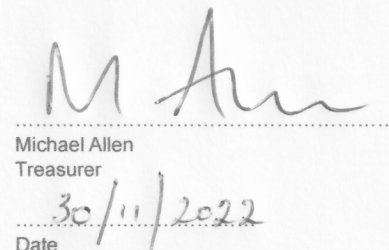 M Allen
Michael Allen
Treasurer
30/11/2022
Date